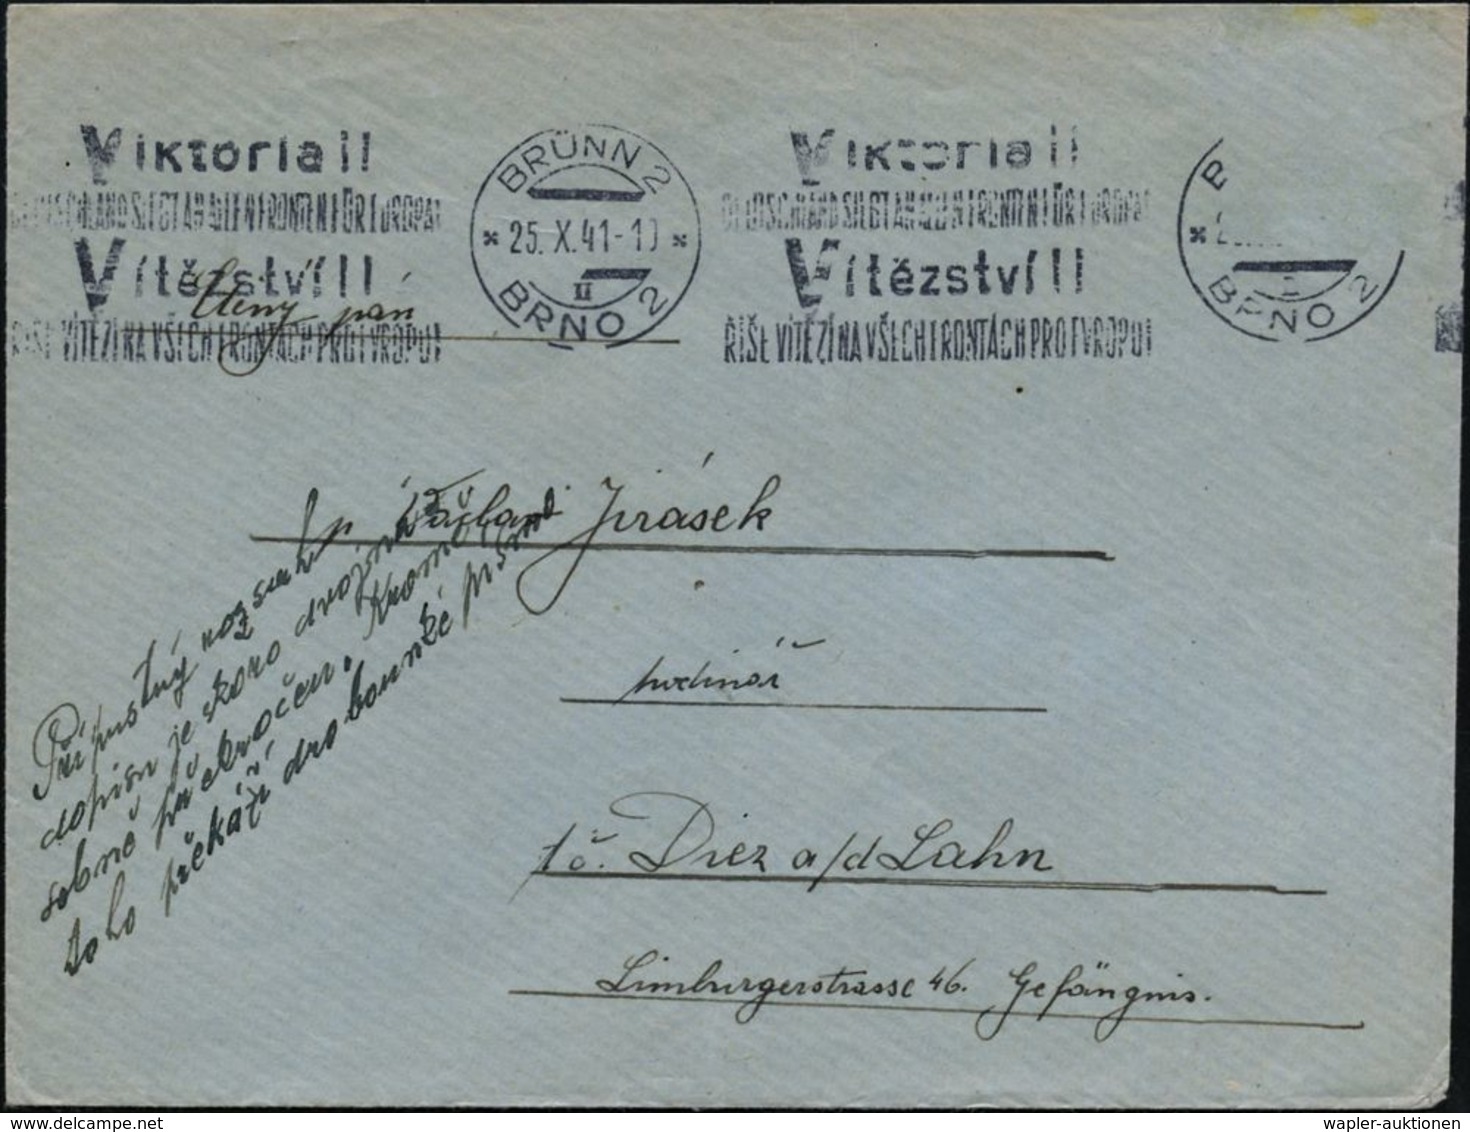 Viktoria!!
DEUTSCHLAND SIEGT AN ALLEN FRONTEN FÜR EUROPA!
Vítězství!!
ŘÍŠE VÍTĚZÍ NA VŠECH FRONTÁCH PRO EVROPU!
BRÜNN 2
25. X. 41-10
II
BRNO 2
Viktoria!!
DEUTSCHLAND SIEGT AN ALLEN FRONTEN FÜR EUROPA!
Vítězství!!
ŘÍŠE VÍTĚZÍ NA VŠECH FRONTÁCH PRO EVROPU!
B
BRNO 2
Ctěný pán
p. Jirásek
hodinář
t.č. Diez a/d Lahn
Limburgerstrasse 46. Gefängnis.
Přípustný rozsah
dopisu je skoro dvojná-
sobně překročen. Kromě
toho překáží drobounké písmo
wapler-auktionen